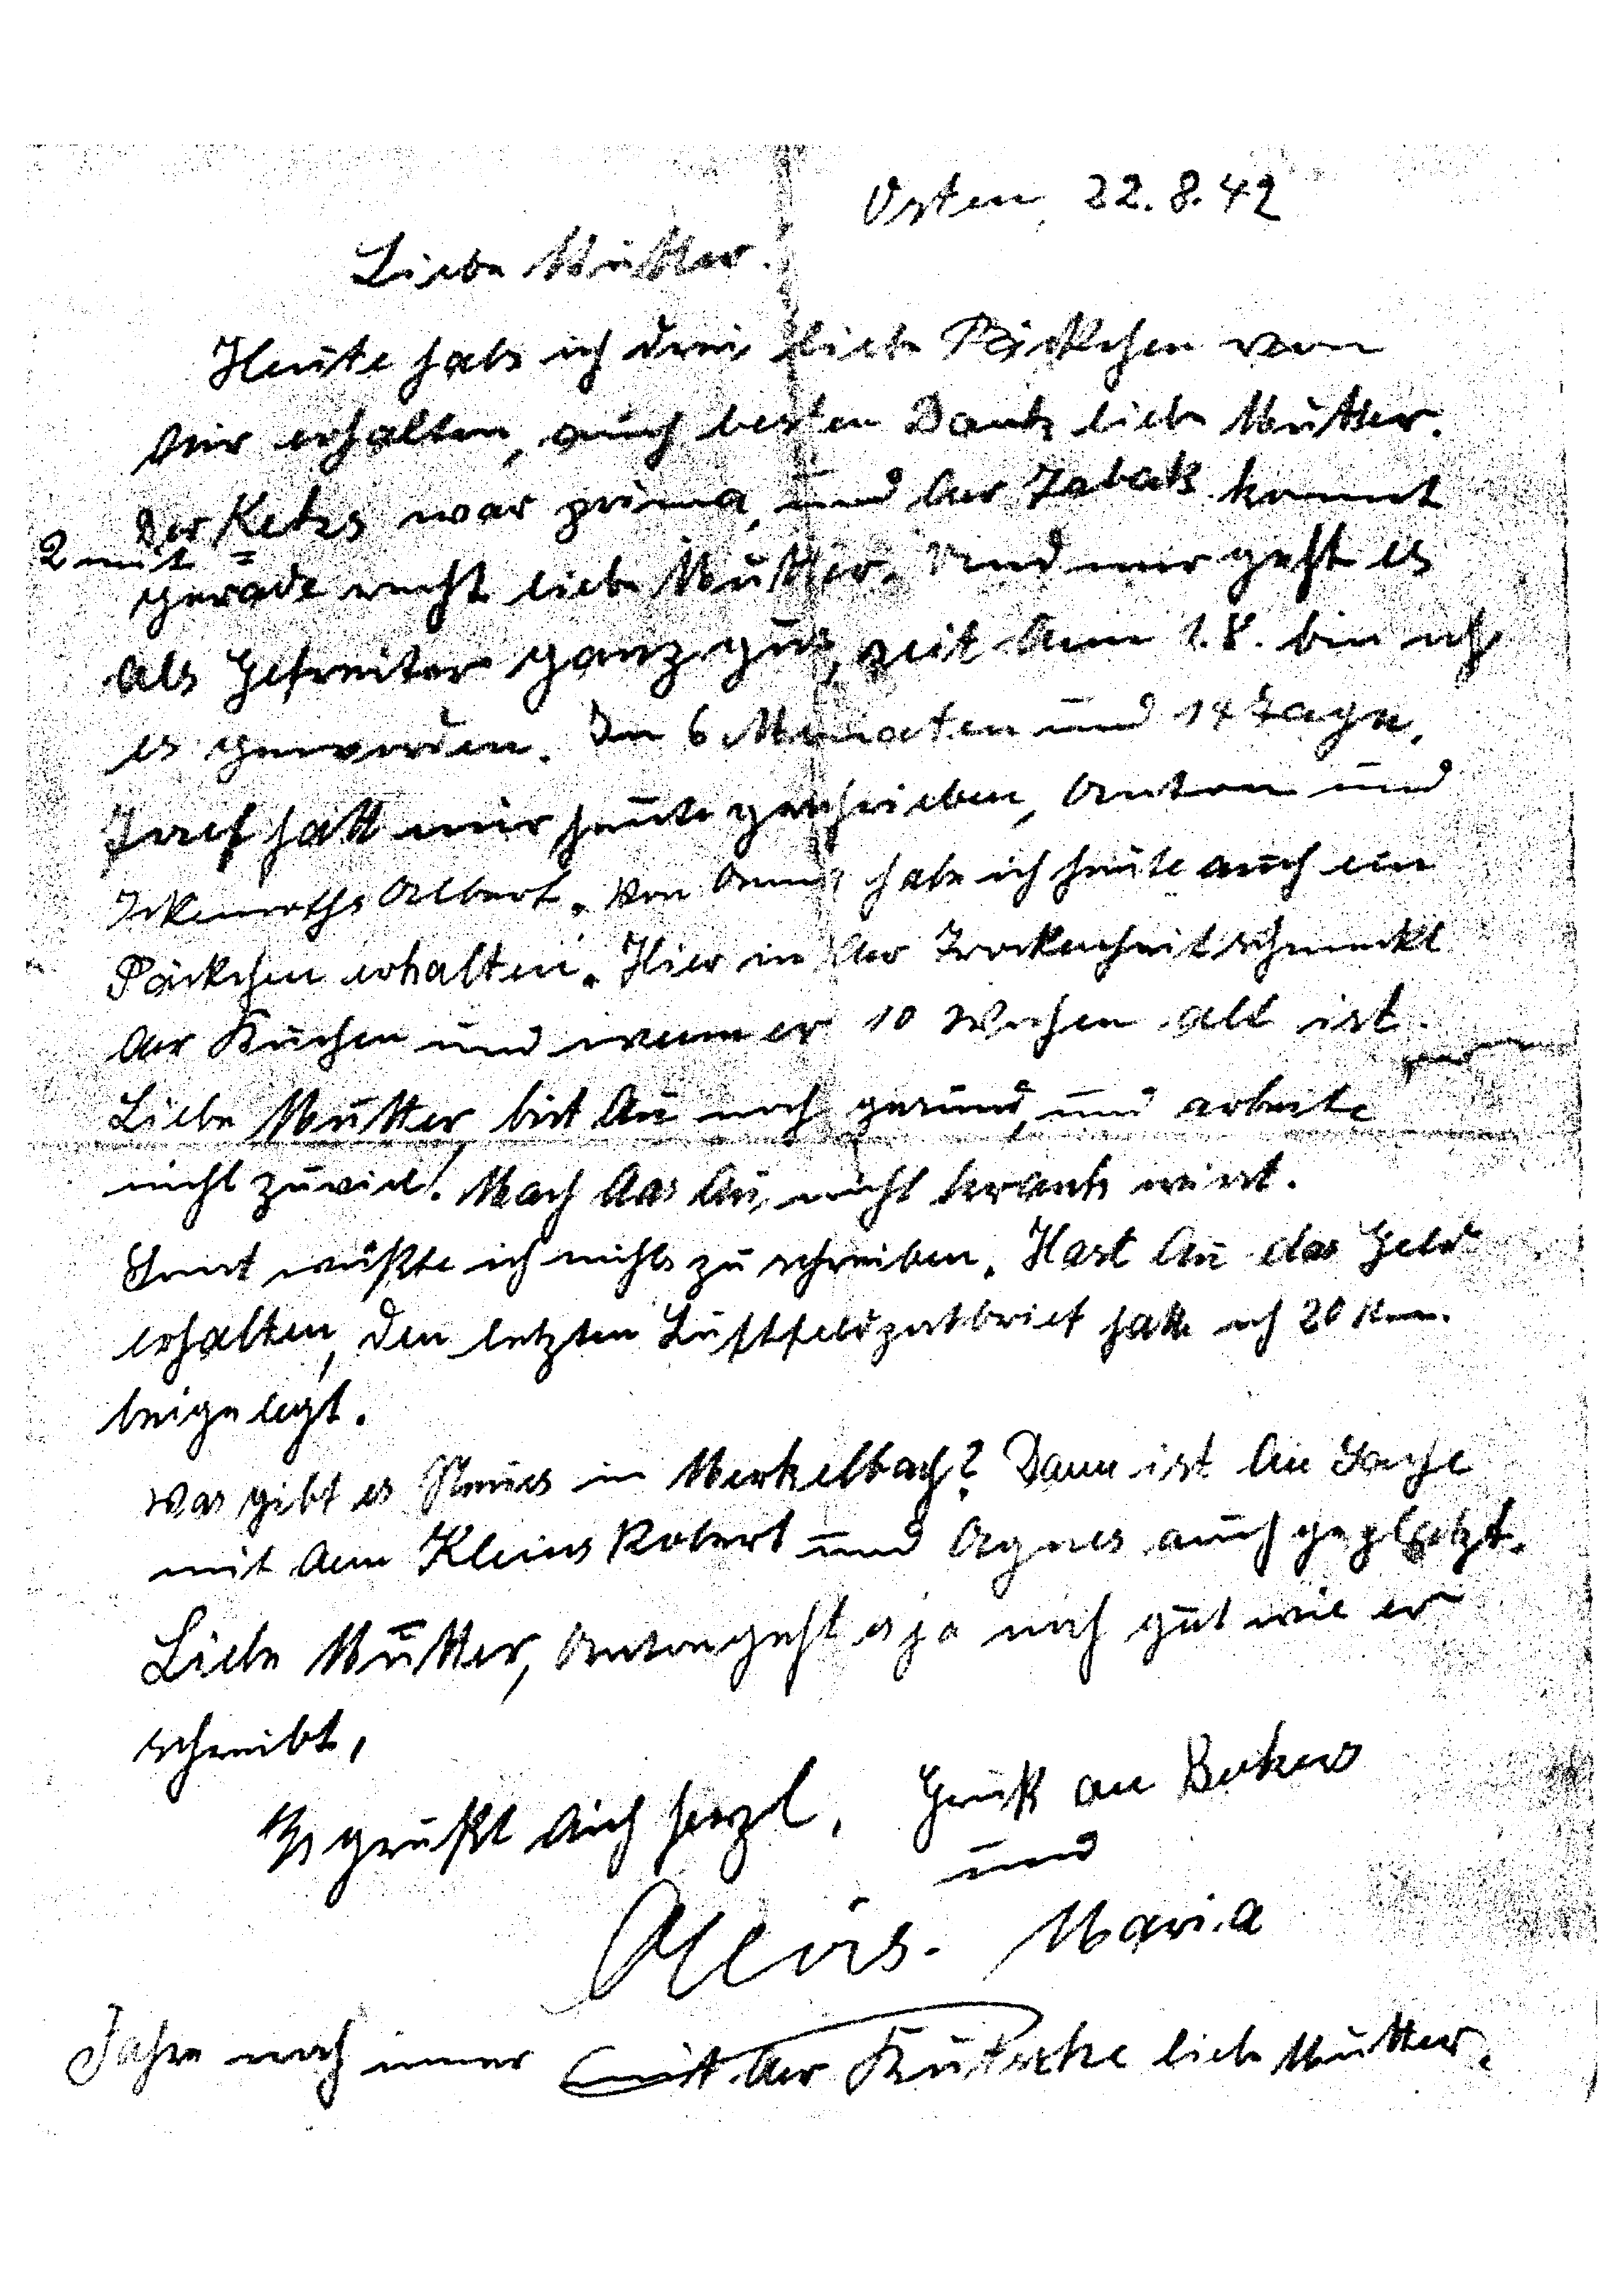 Osten, 22.8.42
Liebe Mutter!
Heute habe ich drei liebe Päckchen von
Dir erhalten, auch besten Dank liebe Mutter.
Der Keks war prima, und der Tabak kommt
gerade recht liebe Mutter. Und mir geht es
als Gefreiter ganz gut, seit dem 1.8. bin ich
es geworden. In 6 Monaten und 14 Tage.
Josef hatt mir heute geschrieben, Anton und
Albert. Von habe ich heute auch ein
Päckchen erhalten. Hier in der Trockenheit schmeckt
der Kuchen und wenn er 10 Wochen alt ist.
Liebe Mutter, bist Du noch gesund, und arbeite
nicht zuviel! Mach das Du nicht krank wirst.
Sonst wüßte ich nichts zu schreiben. Hast Du das Geld
erhalten, den letzten Luftfeldpostbrief hatte ich 20
beigelegt.
Was gibt es Neues in Merkelbach? Dann ist die Sache
mit dem Kleins Robert und Agnes auch geplatzt.
Liebe Mutter, Anton geht es ja noch gut wie er
schreibt,
Es grüßt Dich herzl, Gruß an Beckers
und
Alois. Maria
2 mit
Jahre noch immer mit der liebe Mutter.